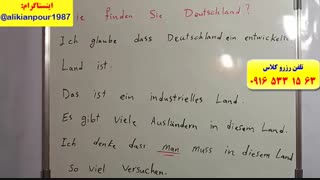 اینستاگرام:
@alikianpour1987
ie finden Sie Deutschland?
Ich glaube dass Deutschland ein entwickelte
Land ist.
تلفن رزرو کلاس
۰۹۱۶ ۵۳۳ ۱۵ ۶۳
Das ist ein industrielles Land.
Es gibt viele Ausländern in diesem Land.
Ich denke dass man muss in diesem Land
So viel versuchen.